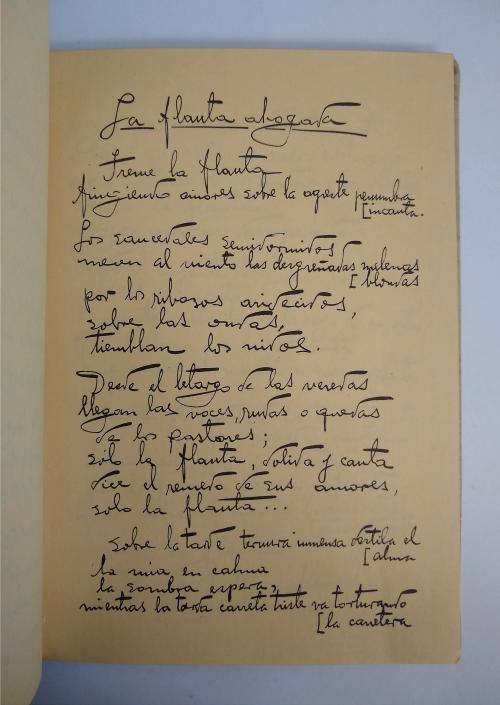 La flauta ahogada
Treme la flauta
fingiendo amores sobre la agreste penumbra
[incauta.
Los saucedales semidormidos
mecen al viento las desgreñadas melenas
[blondas
por los ribazos
sobre las ondas,
tiemblan los nidos.
Desde el letargo de las veredas
llegan las voces, rudas o quedas
de los pastores;
sólo la flauta, dolida y cauta
dice el remedo de sus amores,
solo la flauta...
sobre la tarde ternura inmensa destila el
[alma
la mia en calma
la sombra espera,
mientras la tarda carreta triste va torturando
[la carretera